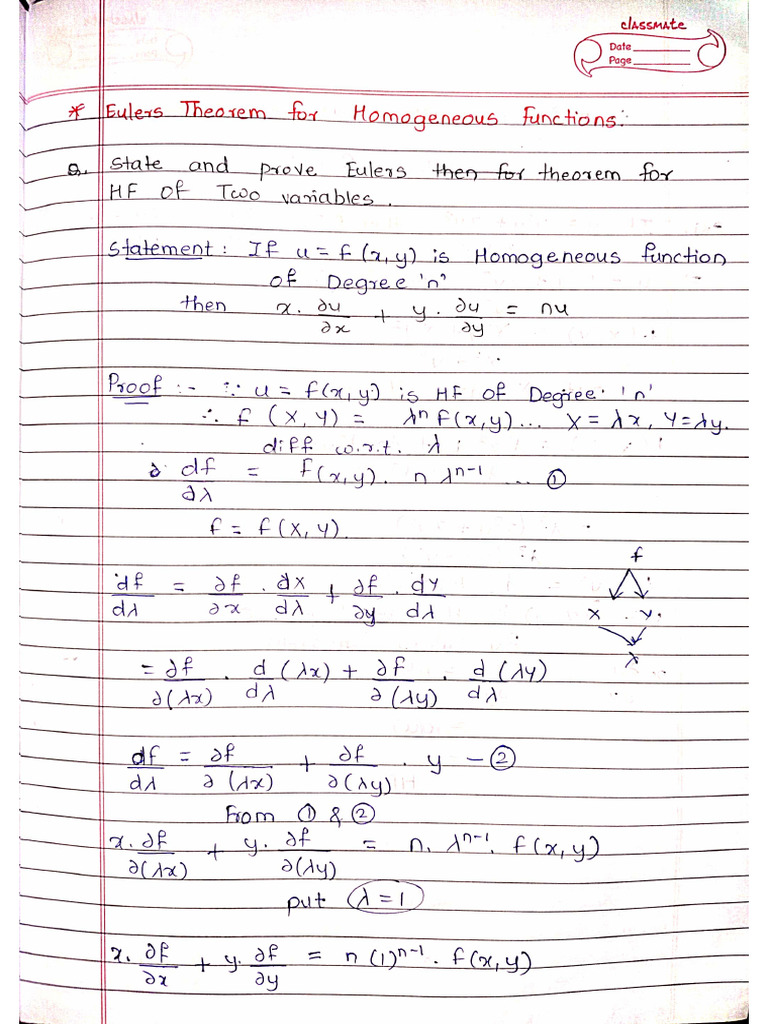 classmate
Date
Page
* Eulers Theorem for Homogeneous functions:
Q. State and prove Eulers then for theorem for
HF Of Two variables.
Statement: If u = f(x,y) is Homogeneous function
of Degree 'n'
then x. ∂u/∂x + y. ∂u/∂y = nu
Proof :- ∵ u = f(x,y) is HF of Degree 'n'
∴ f (X, Y) = λⁿ f(x,y)... X = λx, Y = λy.
diff w.r.t. λ
df/∂λ = f(x,y). n λⁿ⁻¹ ... ①
f = f(X,Y).
f
df/dλ = ∂f/∂x . dx/dλ + ∂f/∂y . dy/dλ
x . y.
λ
= ∂f/∂(λx) . d/dλ (λx) + ∂f/∂(λy) . d/dλ (λy)
df/dλ = ∂f/∂(λx) + ∂f/∂(λy) . y - ②
From ① & ②
x. ∂f/∂(λx) + y. ∂f/∂(λy) = n. λⁿ⁻¹. f(x,y)
put λ = 1
x. ∂f/∂x + y. ∂f/∂y = n (1)ⁿ⁻¹. f(x,y)